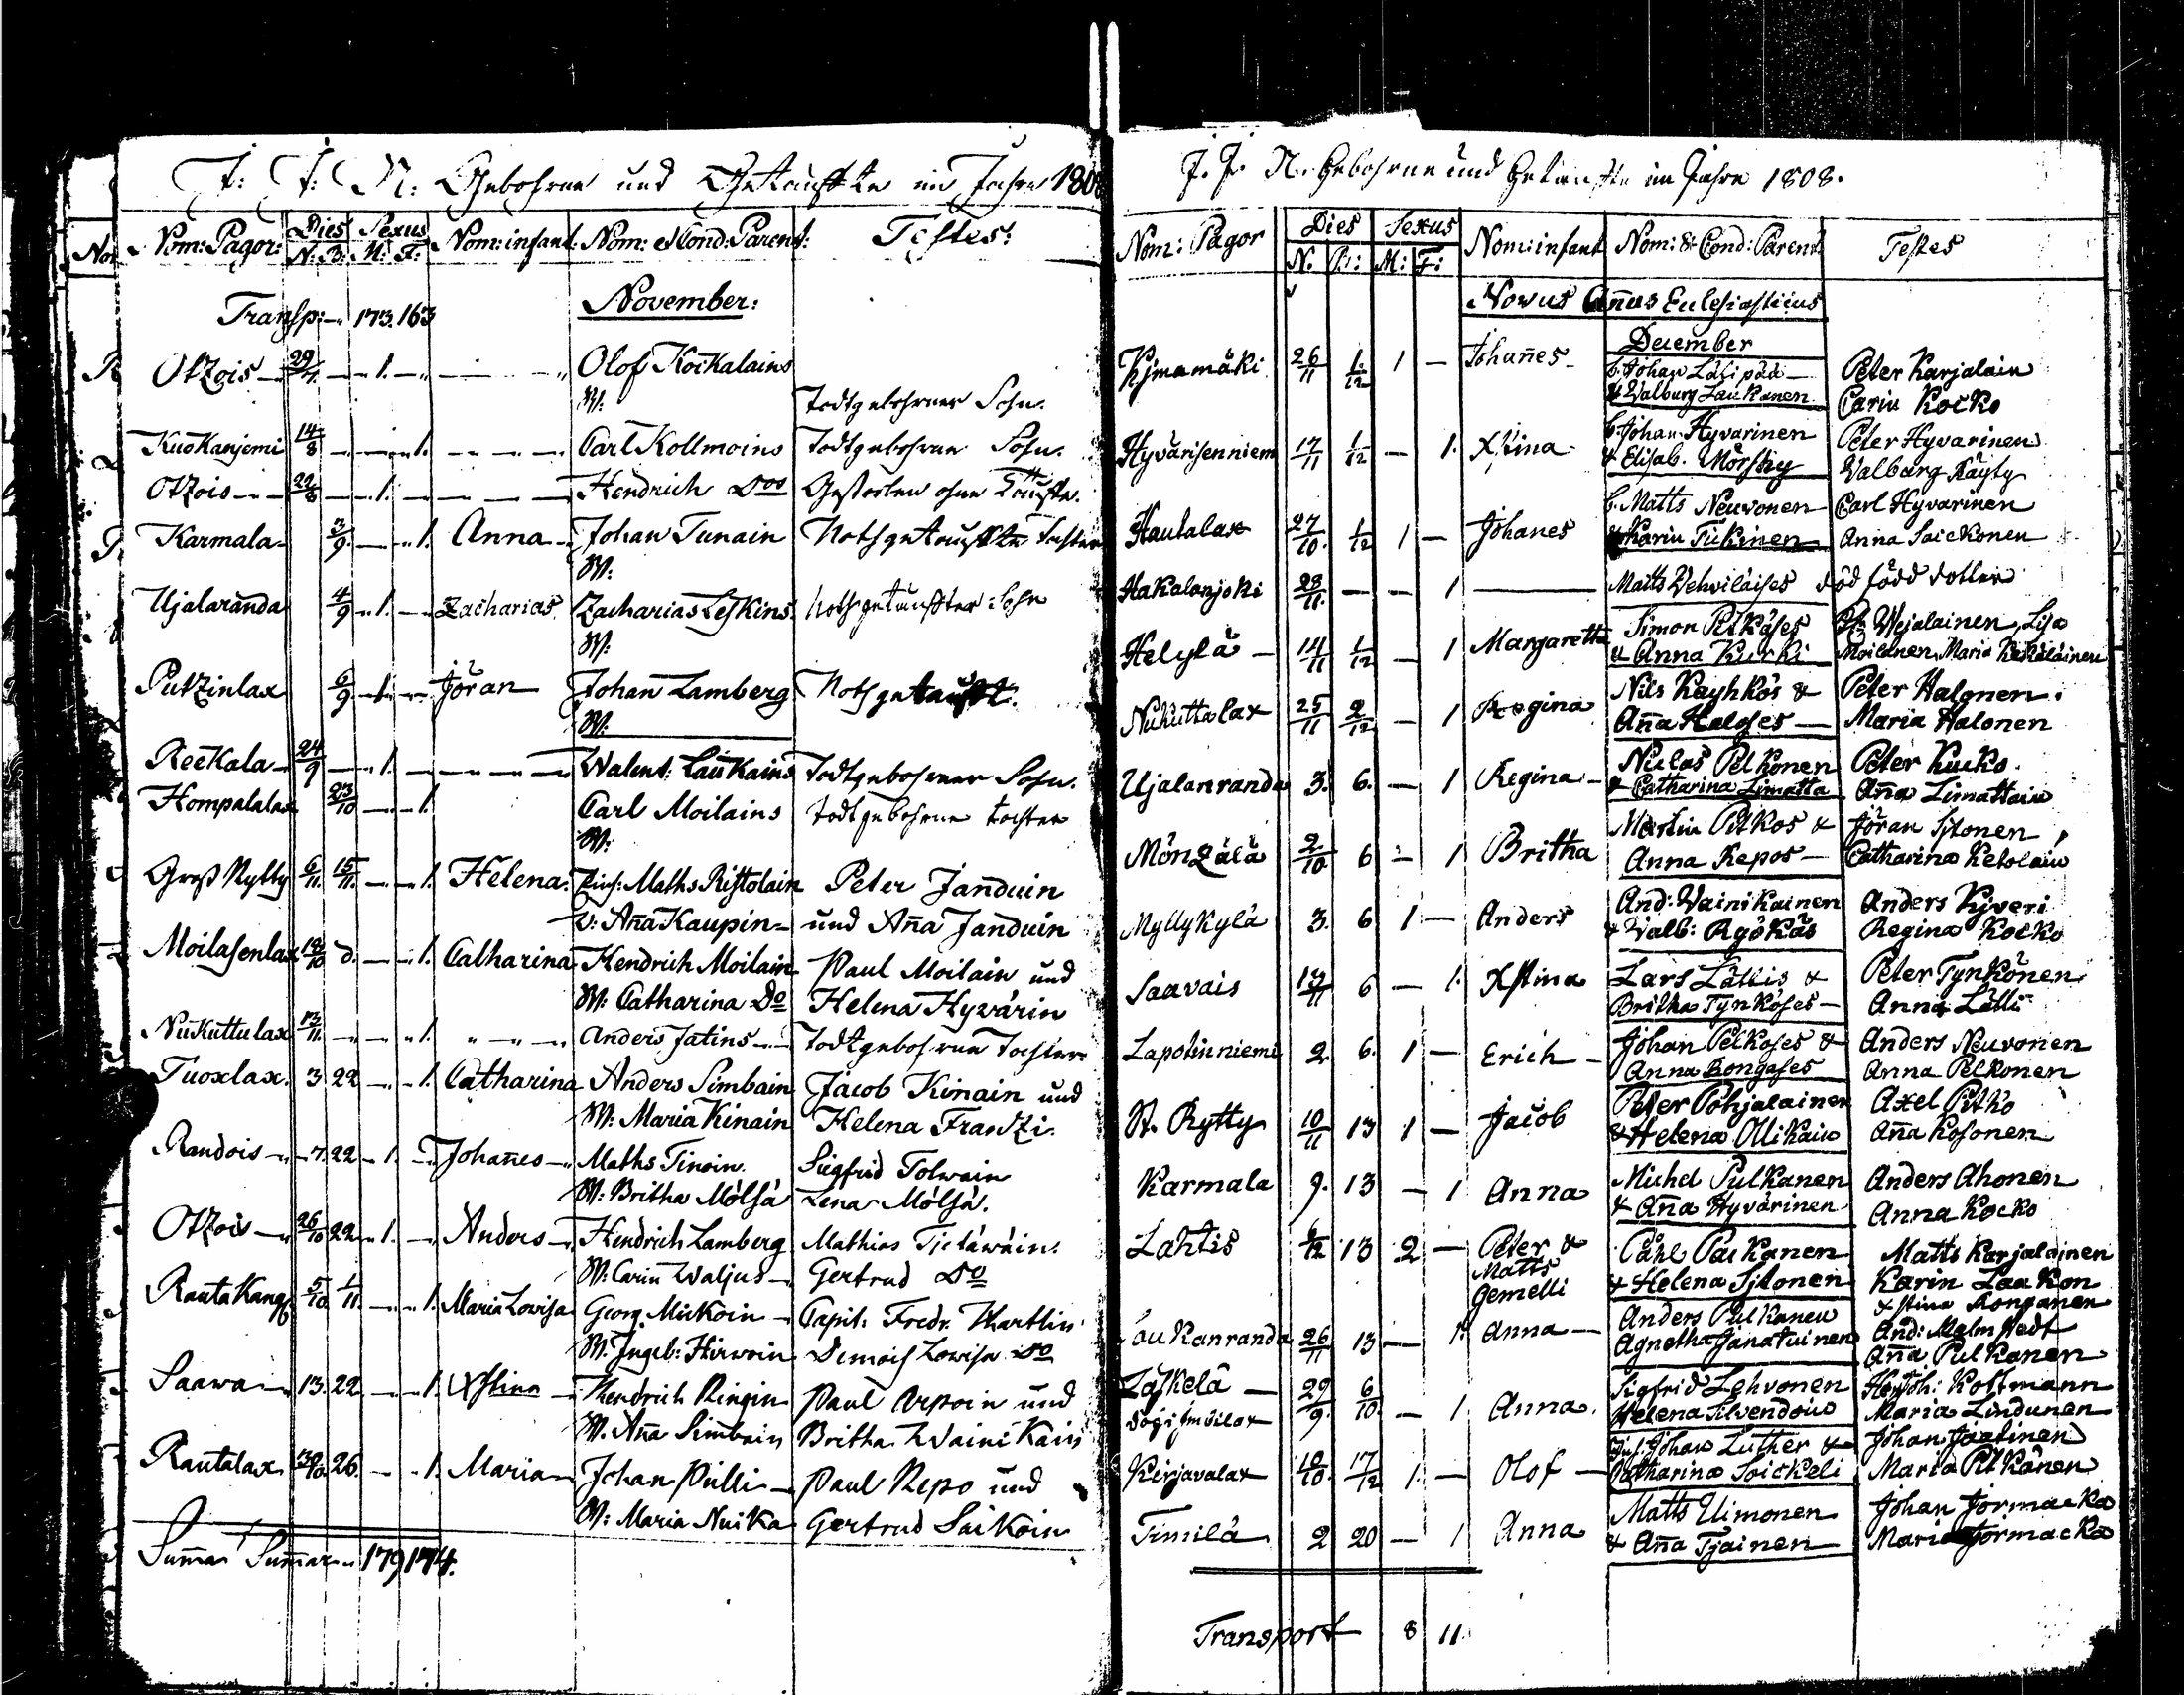 J: J: N: Gebohrne und Getaufte im Jahre 1808
Nom: Pagor: Dies Sexus Nom: infant: Nom: et Cond: Parent: Testes:
N: B: M: F:
Transp: 173. 163 November:
Otzois 29/7. 1. Olof Kockalains
W: Todtgebohrner Sohn.
Kuokanjemi 14/8 1. Carl Kollmoins Todtgebohrne Sohn.
Otzois 29/8 1. Hendrich Doo Gestorben ohne Taufe.
Karmala 3/9. 1. Anna Johan Tunain Nothgetaufte Tochter
W:
Ujalaranda 4/9 1. Zacharias Zacharias Leskins Nothgetaufter Sohn
W:
Putzinlax 6/9 1. Jöran Johan Lamberg Nothgetauft.
W:
Reekala 24/9 1. Walent: Laukains Todtgebohrner Sohn.
Hompalalax 23/10 1. Carl Moilains todtgebohrne tochter
W:
Gross Rytty 6/11. 15/11. 1. Helena. Maths Ristolain Peter Janduin
v: Aña Kaupin= und Aña Janduin
Moilasenlax 18/10 d. 1. Catharina Hendrich Moilain Paul Moilain und
W: Catharina Do Helena Hyvärin
Nukuttulax 13/11. 1. Anders Jatins Todtgebohrne Tochter
Tuoxlax. 3 22 1. Catharina Anders Simbain Jacob Kinain und
W: Maria Kinain Helena Frantzi.
Randois 7. 22 1. Johañes Maths Tinoin. Siegfrid Tolwain
W: Britha Mölsä Lena Mölsä.
Otzois 26/10 22 1. Anders Hendrich Lamberg Mathias Tietäwäin.
W: Carin Waljus Gertrud Do
Rautakang 5/10. 1/11. 1. Maria Lovisa Georg Mickoin Capit: Fredr. Martlin
W. Ingeb: Hirwoin Demois Lovisa Do
Saawa 13. 22 1. Xstina Hendrich Ringin Paul Repoin und
W. Aña Simbain Britha Wainikain
Rautalax 30/10 26. 1. Maria Johan Pulli Paul Repo und
W: Maria Nuika Gertrud Saikoin
Suma Sumar 179 174.
J. J. N. Gebohrne und Getaufte im Jahre 1808.
Nom: Pagor Dies Sexus Nom: infant Nom: & Cond: Parent Testes
N. B: M: F:
Novus Añus Eclesiasticus
December
Kjmamäki 26/11 1/12 1 — Johañes b. Johan Lätipää Peter Karjalain
& Walburg Laukanen Carin Kocko
Hyvärisenniem 17/11 1/12 — 1. Xstina b. Johan Hyvarinen Peter Hyvarinen
& Elisab. Mörsky Valbarg Käyty
Hautalax 27/10. 1/12 1 — Johanes b. Matts Neuvonen Carl Hyvarinen
& Karin Tickinen Anna Saickonen
Hakalanjoki 23/11. — — 1 Matts Vehviläises död född dotter
Helylä 14/11 1/12 — 1 Margaretha Simon Pitkäses Wejalainen, Lisa
& Anna Kurki Moilanen, Maria Kaikalainen
Nukuttalax 25/11 2/12 — 1 Regina Nils Kayhkös & Peter Halonen.
Aña Haloses Maria Halonen
Ujalanranda 3. 6. — 1 Regina Niclas Pelkonen Peter Kucko.
& Catharina Limatta Aña Limattain
Mönzälä 2/10 6 — 1 Britha Martin Pitkos & Jöran Sitonen
Anna Repos Catharina Ketolain
Myllykylä 3. 6 1 — Anders And: Wainikainen Anders Kyveri
& Valb: Ryökäs Regina Kocko
Saavais 13/11 6 — 1. Xstina Lars Lättis & Peter Tynkönen
Britha Tynköses Anna Lätti
Lapotinniemi 2. 6. 1 — Erich Johan Pelkoses & Anders Neuvonen
Anna Rongases Anna Pelkonen
St. Rytty 10/11 13 1 — Jacob Peter Pohjalainen Axel Pitko
& Helena Ollikain Aña Kosonen
Karmala 9. 13 — 1 Anna Michel Pulkanen Anders Ahonen
& Aña Hyvärinen Anna Kocko
Lahtis 6/12 13 2 — Peter & Påhl Packanen Matts Karjalainen
Matts & Helena Sitonen Karin Laakon
Gemelli Xstina Ronganen
Laukanranda 26/11 13 — 1. Anna Anders Pulkanen And: Malmstedt
Agnetha Janatuinen Aña Pulkanen
Läskelä 29/9. 6/10. — 1 Anna. Sigfrid Lehvonen Koffmann
Helena Silvendoin Maria Lindunen
Kirjavalax 10/10. 17/12 1. — Olof Johan Luther & Johan Jaatinen
Catharina Soickeli Maria Pitkänen
Timilä 2 20 — 1 Anna Matts Uimonen Johan Jormacka
& Aña Tjainen Maria Jormacka
Transport 8 11.